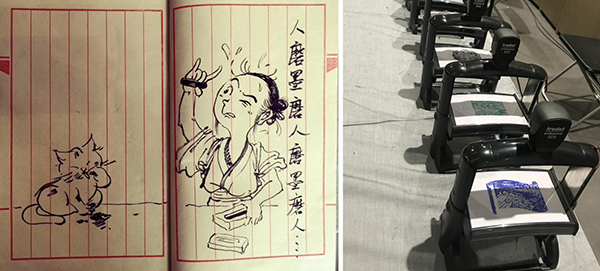 人磨墨磨人磨墨磨人……
trodat
trodat